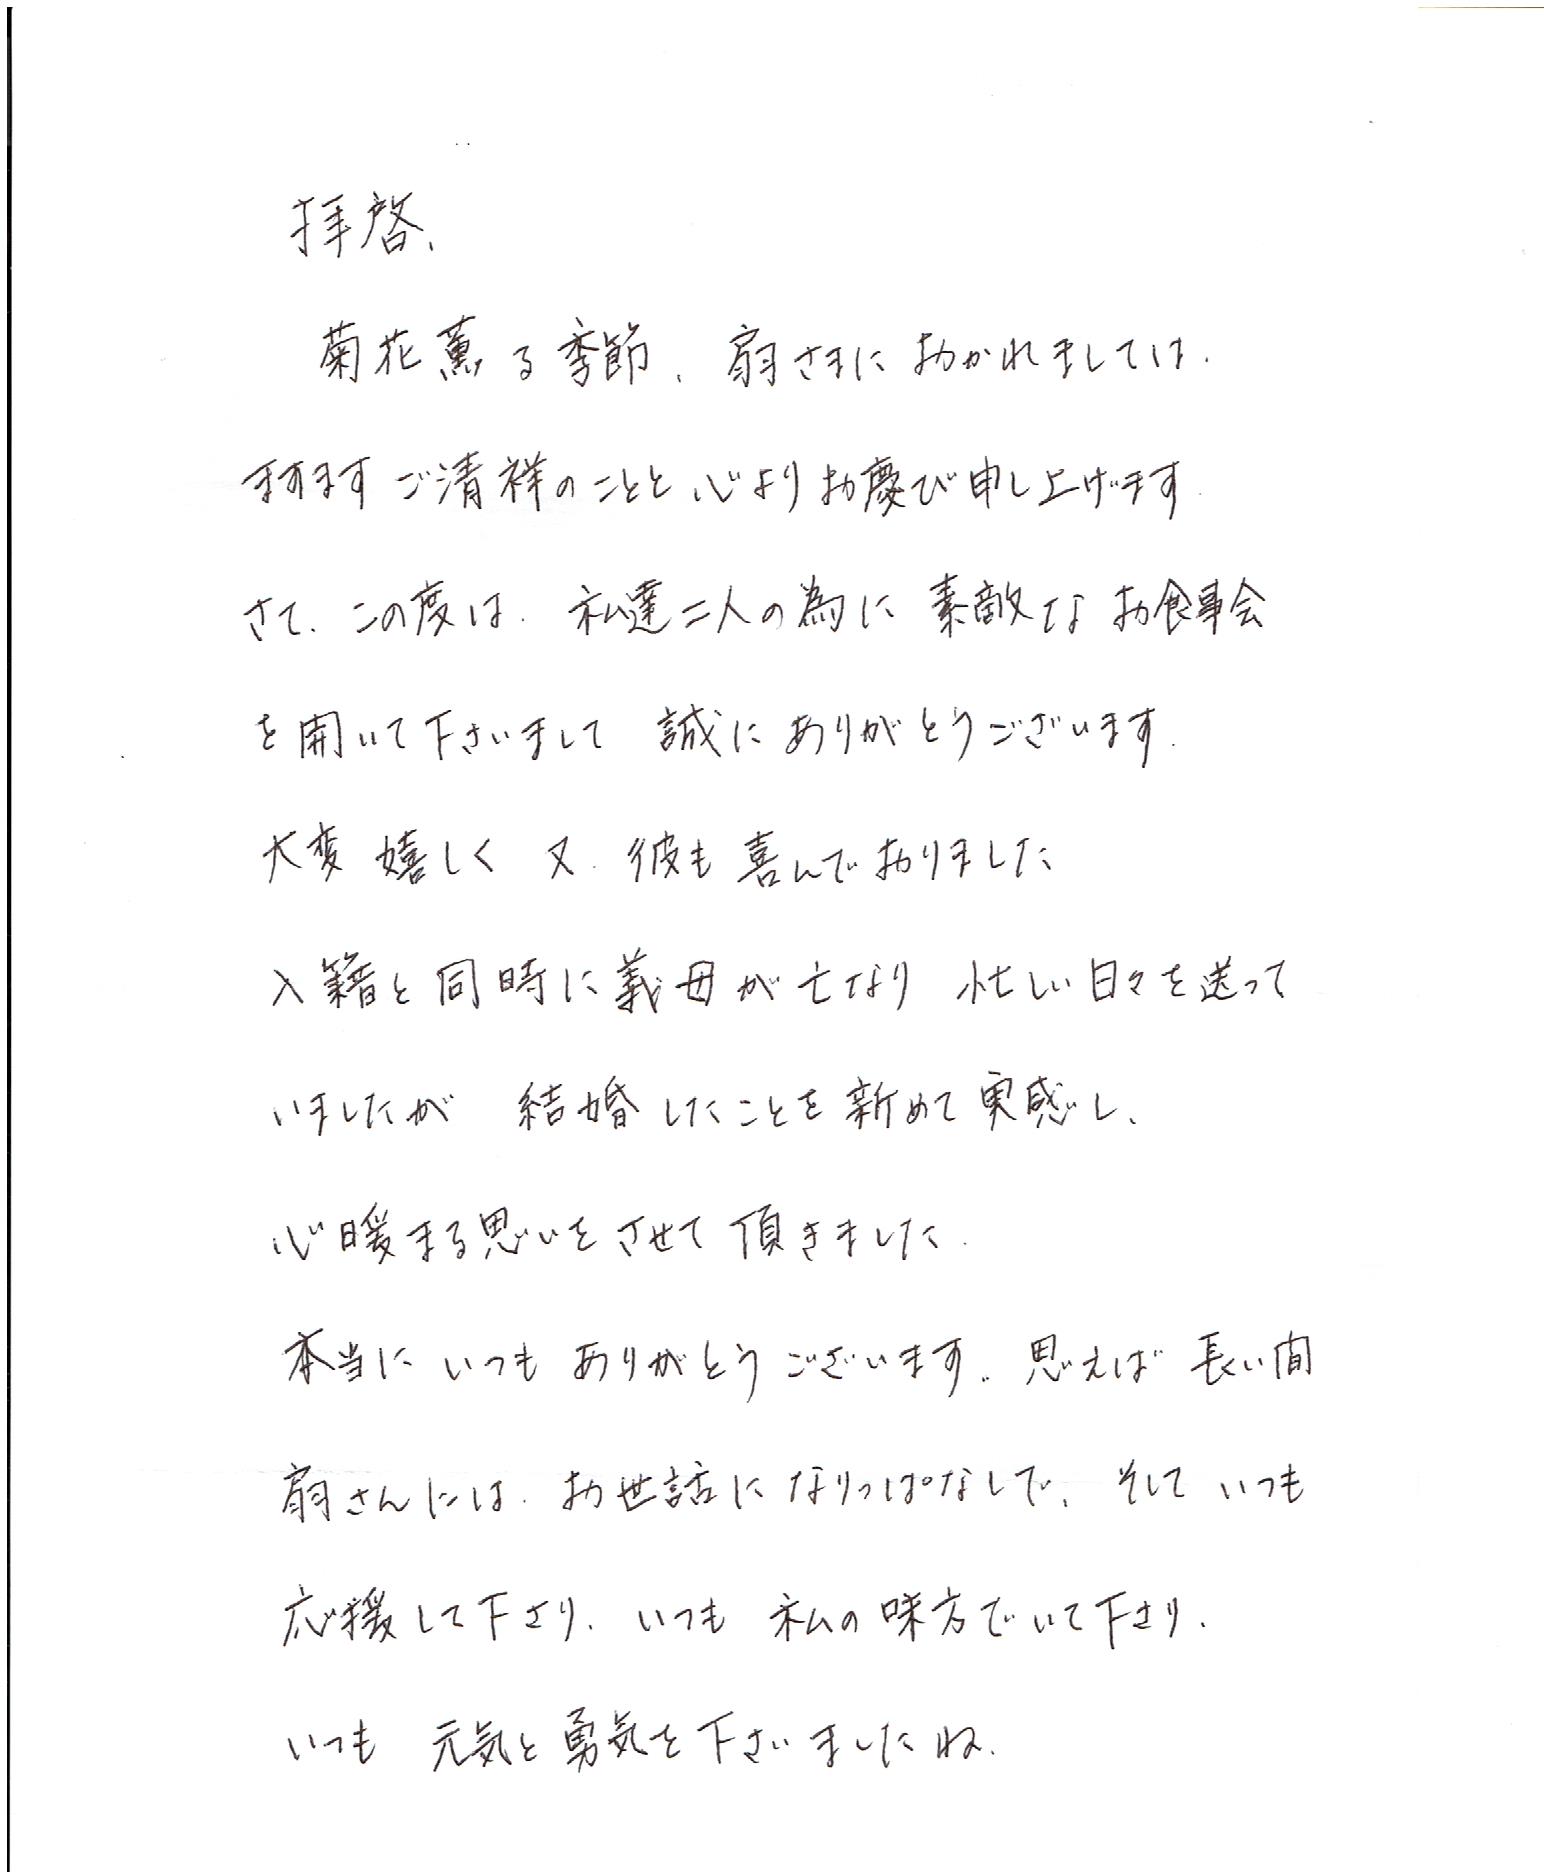 拝啓、
菊花薫る季節、扇さまにおかれましては、
ますますご清祥のことと心よりお慶び申し上げます。
さて、この度は、私達二人の為に素敵なお食事会
を開いて下さいまして 誠にありがとうございます。
大変嬉しく 又、彼も喜んでおりました
入籍と同時に義母が亡なり 忙しい日々を送って
いましたが 結婚したことを新めて実感し、
心暖まる思いをさせて頂きました。
本当にいつもありがとうございます。思えば長い間
扇さんには、お世話になりっぱなしで、そしていつも
応援して下さり、いつも私の味方でいて下さり、
いつも 元気と勇気を下さいましたね。